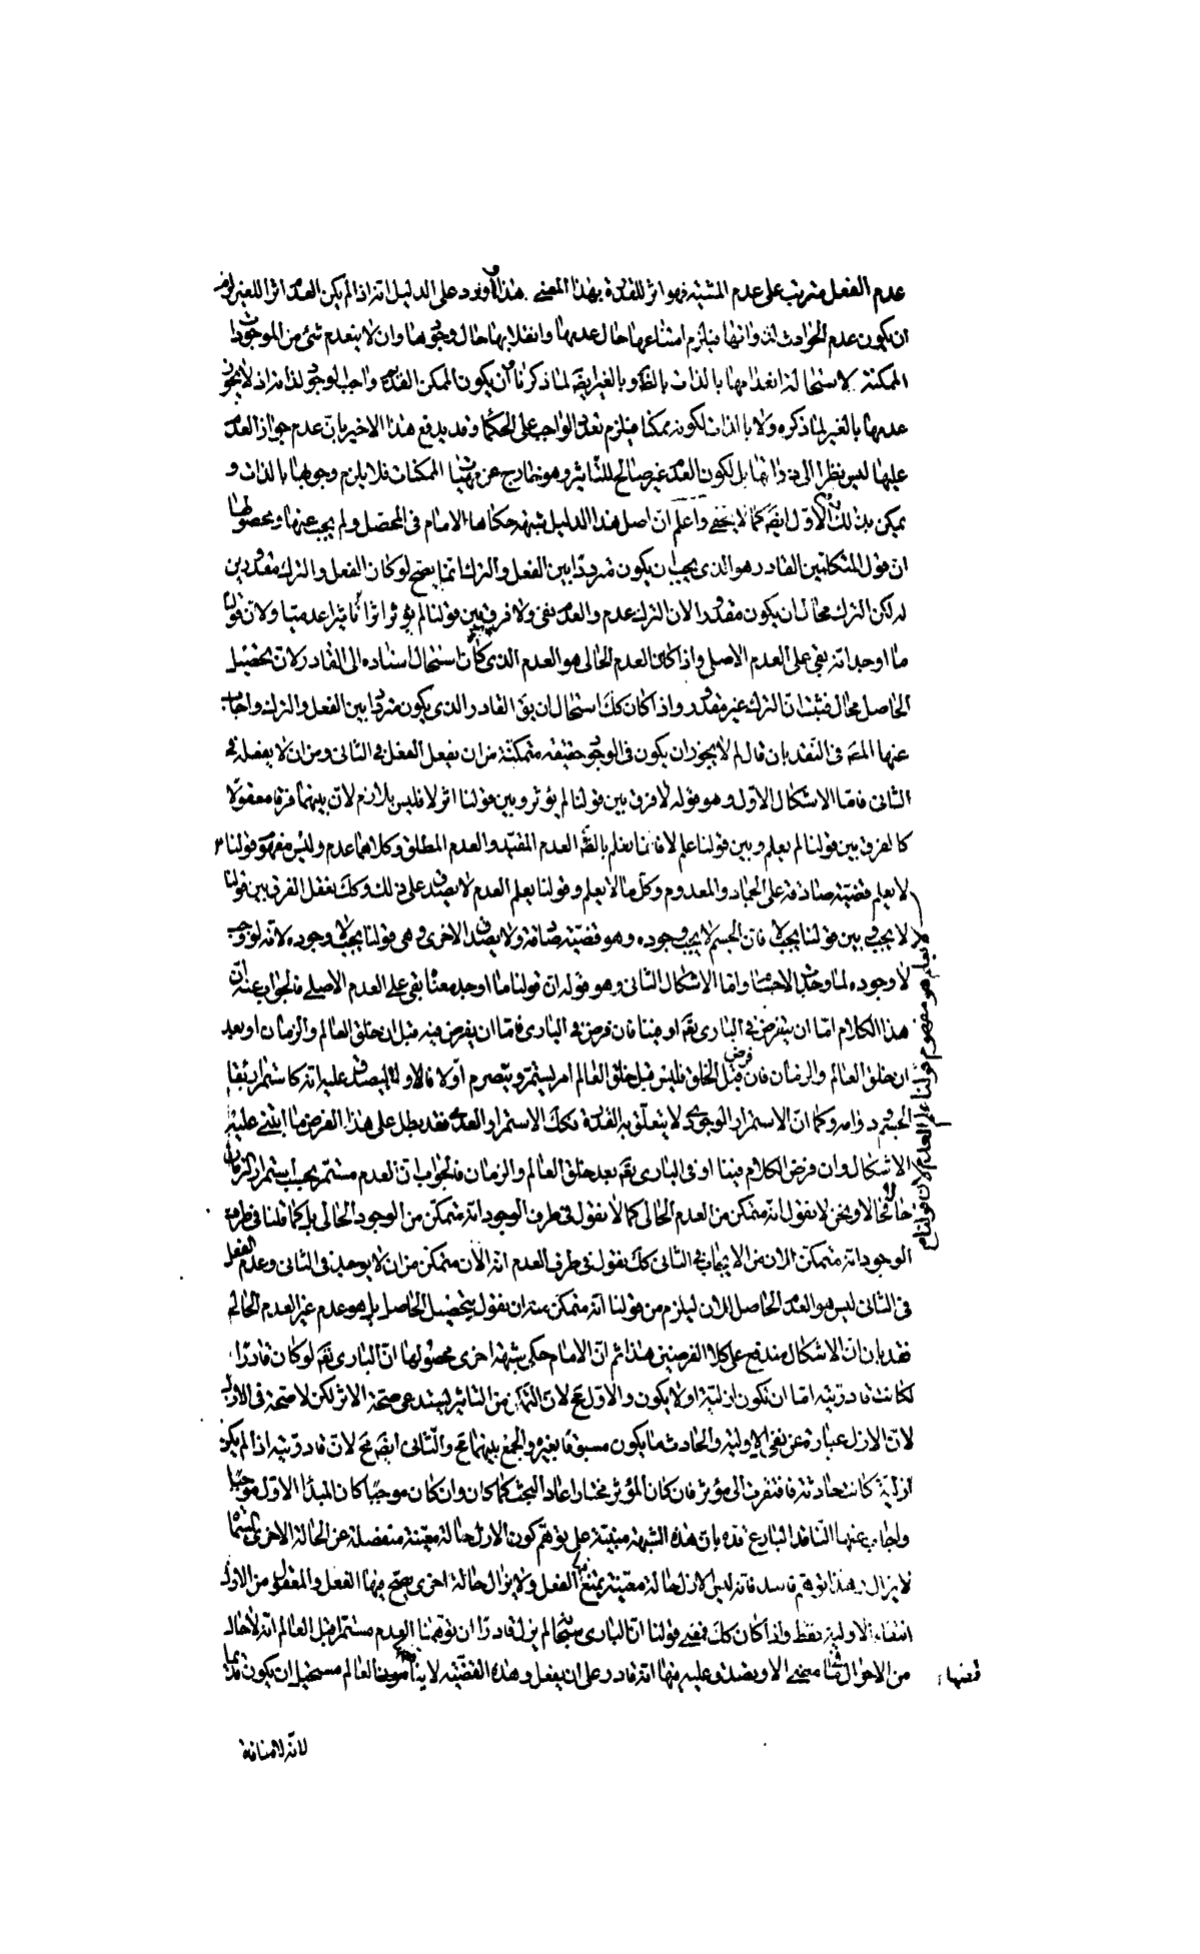 عدم الفعل مترتب على عدم المشية فهو اثر للقدرة بهذا المعنى هذا واورد على الدليل انه اذا لم يكن العدم اثرا للغير لزم
ان يكون عدم الحوادث لذواتها فيلزم امتناعها حال عدمها وانقلابها حال وجودها وان لا ينعدم شئ من الموجودات
الممكنة لاستحالة انعدامها بالذات بالضرورة وبالغير ايضا لما ذكرنا وان يكون الممكن القديم واجب الوجود لذاته اذ لا يجوز
عدمها بالغير لما ذكره ولا بالذات لكونه ممكنا فيلزم تعدد الواجب على الحكماء وقد يدفع هذا الاخير بان عدم جواز العدم
عليها ليس نظرا الى ذواتها بل لكون العدم غير صالح للتاثير وهو خارج عن مهيات الممكنات فلا يلزم وجوبها بالذات و
يمكن بذلك دفع الاول ايضا كما لا يخفى واعلم ان اصل هذا الدليل شبهة حكاها الامام فى المحصل ولم يجب عنها ومحصولها
ان قول المتكلمين القادر هو الذى يجب ان يكون مترددا بين الفعل والترك انما يصح لو كان الفعل والترك مقدورين
له لكن الترك محال ان يكون مقدورا لان الترك عدم والعدم نفى ولا فرق بين قولنا لم يؤثر اثرا وبين تاثيرا عدميا ولان قولنا
ما اوجد انه بقى على العدم الاصلى واذا كان العدم الحالى هو العدم الذى كان استحال اسناده الى القادر لان تحصيل
الحاصل محال فثبت ان الترك غير مقدور واذا كان كك استحال ان يق القادر الذى يكون مترددا بين الفعل والترك واجاب
عنها المصـ فى النقد بان قال لم لا يجوز ان يكون فى الوجود حقيقة متمكنة من ان يفعل الفعل فى الثانى ومن ان لا يفعله فى
الثانى فاما الاشكال الاول وهو قوله لا فرق بين قولنا لم يؤثر وبين قولنا اثر لا فليس بلازم لان بينهما فرقا معقولا
كالفرق بين قولنا لم يعلم وبين قولنا علم لا فانا نعلم بالضرورة العدم المقيد والعدم المطلق وكلاهما عدم وليس مفهوم قولنا
لا يعلم قضيته صادقة على الجماد والمعدوم وكل ما لا يعلم وقولنا يعلم العدم لا يصدق على ذلك وكك نعقل الفرق بين قولنا
لا يجب وبين قولنا يجب لا فان الجسم لا يجب وجوده وهو قضية صادقة ولا يصدق الاخرى وهى قولنا يجب لا وجوده لانه لو وجب
لا وجوده لما وجدت الاجسام واما الاشكال الثانى وهو قوله ان قولنا ما اوجد معناه بقى على العدم الاصلى فالجواب عنه ان
هذا الكلام اما ان يفرض فى البارى تع او فينا فان فرض فى البارى فاما ان يفرض فيه قبل ان خلق العالم والزمان او بعد
ان خلق العالم والزمان فان فرض قبل الخلق فليس قبل خلق العالم امر يستمر ويتصرم اولا فاولا ليصدق عليه انه كاستمرار بقاء
الجسم ودوامه وكما ان الاستمرار الوجودى لا يتعلق به القدرة فكك الاستمرار العدمى فقد بطل على هذا الفرض ما ابتنى عليه
الاشكال وان فرض الكلام فينا او فى البارى تع بعد خلق العالم والزمان فالجواب ان العدم مستمر بحسب استمرار الزمان
حالا فحالا ونحن لا نقول انه متمكن من العدم الحالى كما لا نقول فى طرف الوجود انه متمكن من الوجود الحالى بل كما قلنا فى طرف
الوجود انه متمكن الان من الايجاد فى الثانى كك نقول فى طرف العدم انه الان متمكن من ان لا يوجد فى الثانى وعدم الفعل
فى الثانى ليس هو العدم الحاصل الان ليلزم من قولنا انه متمكن منه ان نقول بتحصيل الحاصل بل هو عدم غير العدم الحالى
فقد بان ان الاشكال مندفع على كلا الفرضين هذا ثم ان الامام حكى شبهة اخرى محصولها ان البارى تع لو كان قادرا
لكانت قادريته اما ان تكون ازلية او لا يكون والاول مح لان التمكن من التاثير يستدعى صحة الاثر لكن لا صحة فى الازل
لان الازل عبارة عن نفى الاولية والحادث ما يكون مسبوقا بغيره والجمع بينهما مح والثانى ايضا مح لان قادريته اذا لم يكن
ازلية كانت حادثة فافتقرت الى مؤثر فان كان المؤثر مختارا عاد البحث كما كان وان كان موجبا كان المبدأ الاول موجبا
واجاب عنها الناقد البارع قده بان هذه الشبهة مبنية على توهم كون الازل حالة معينة منفصلة عن الحالة الاخرى المسماة
لا يزال وهذا توهم فاسد فانه ليس الازل حالة معينة يمتنع فيها الفعل ولا يزال حالة اخرى يصح فيها الفعل والمعقول من الازل
انتفاء الاولية فقط واذا كان كك فمعنى قولنا ان البارى سبحانه لم يزل قادرا ان توهمنا العدم مستمرا قبل العالم انه لا حال
من الاحوال فيما مضى الا ويصدق عليه فيها انه قادر على ان يفعل وهذه القضية لا ينافيها كون العالم مستحيل ان يكون قديما
لا يعلم هو مفهوم قولنا علم العدم لان قولنا
لانه لا منافاة